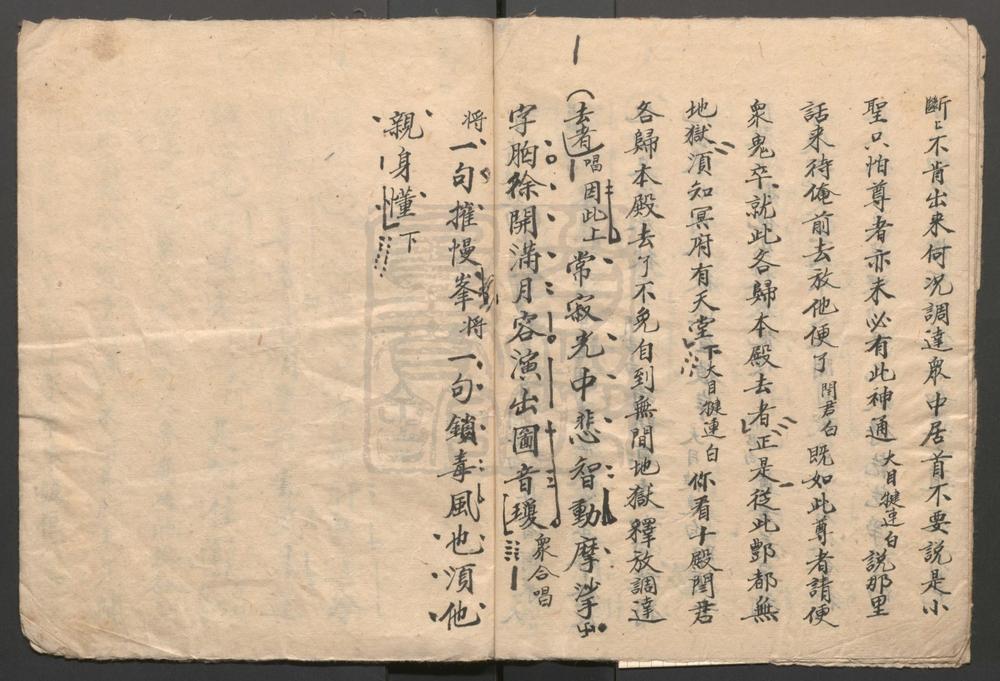 斷〻不肯出来何况調達衆中居首不要說是小
聖只怕尊者亦未必有此神通大目犍連白說那里
話来待俺前去放他便了閆君白既如此尊者請便
衆鬼卒就此各歸本殿去者正是從此酆都無
地獄湏知冥府有天堂下大目犍連白你看十殿閆君
各歸本殿去了不免自到無間地獄釋放調達
去者唱因此上常寂光中悲智動摩挲
字胸徐開満月容演出圓音瓊衆合唱
将一句摧慢峯将一句鎖毒風也湏他
親身懂下